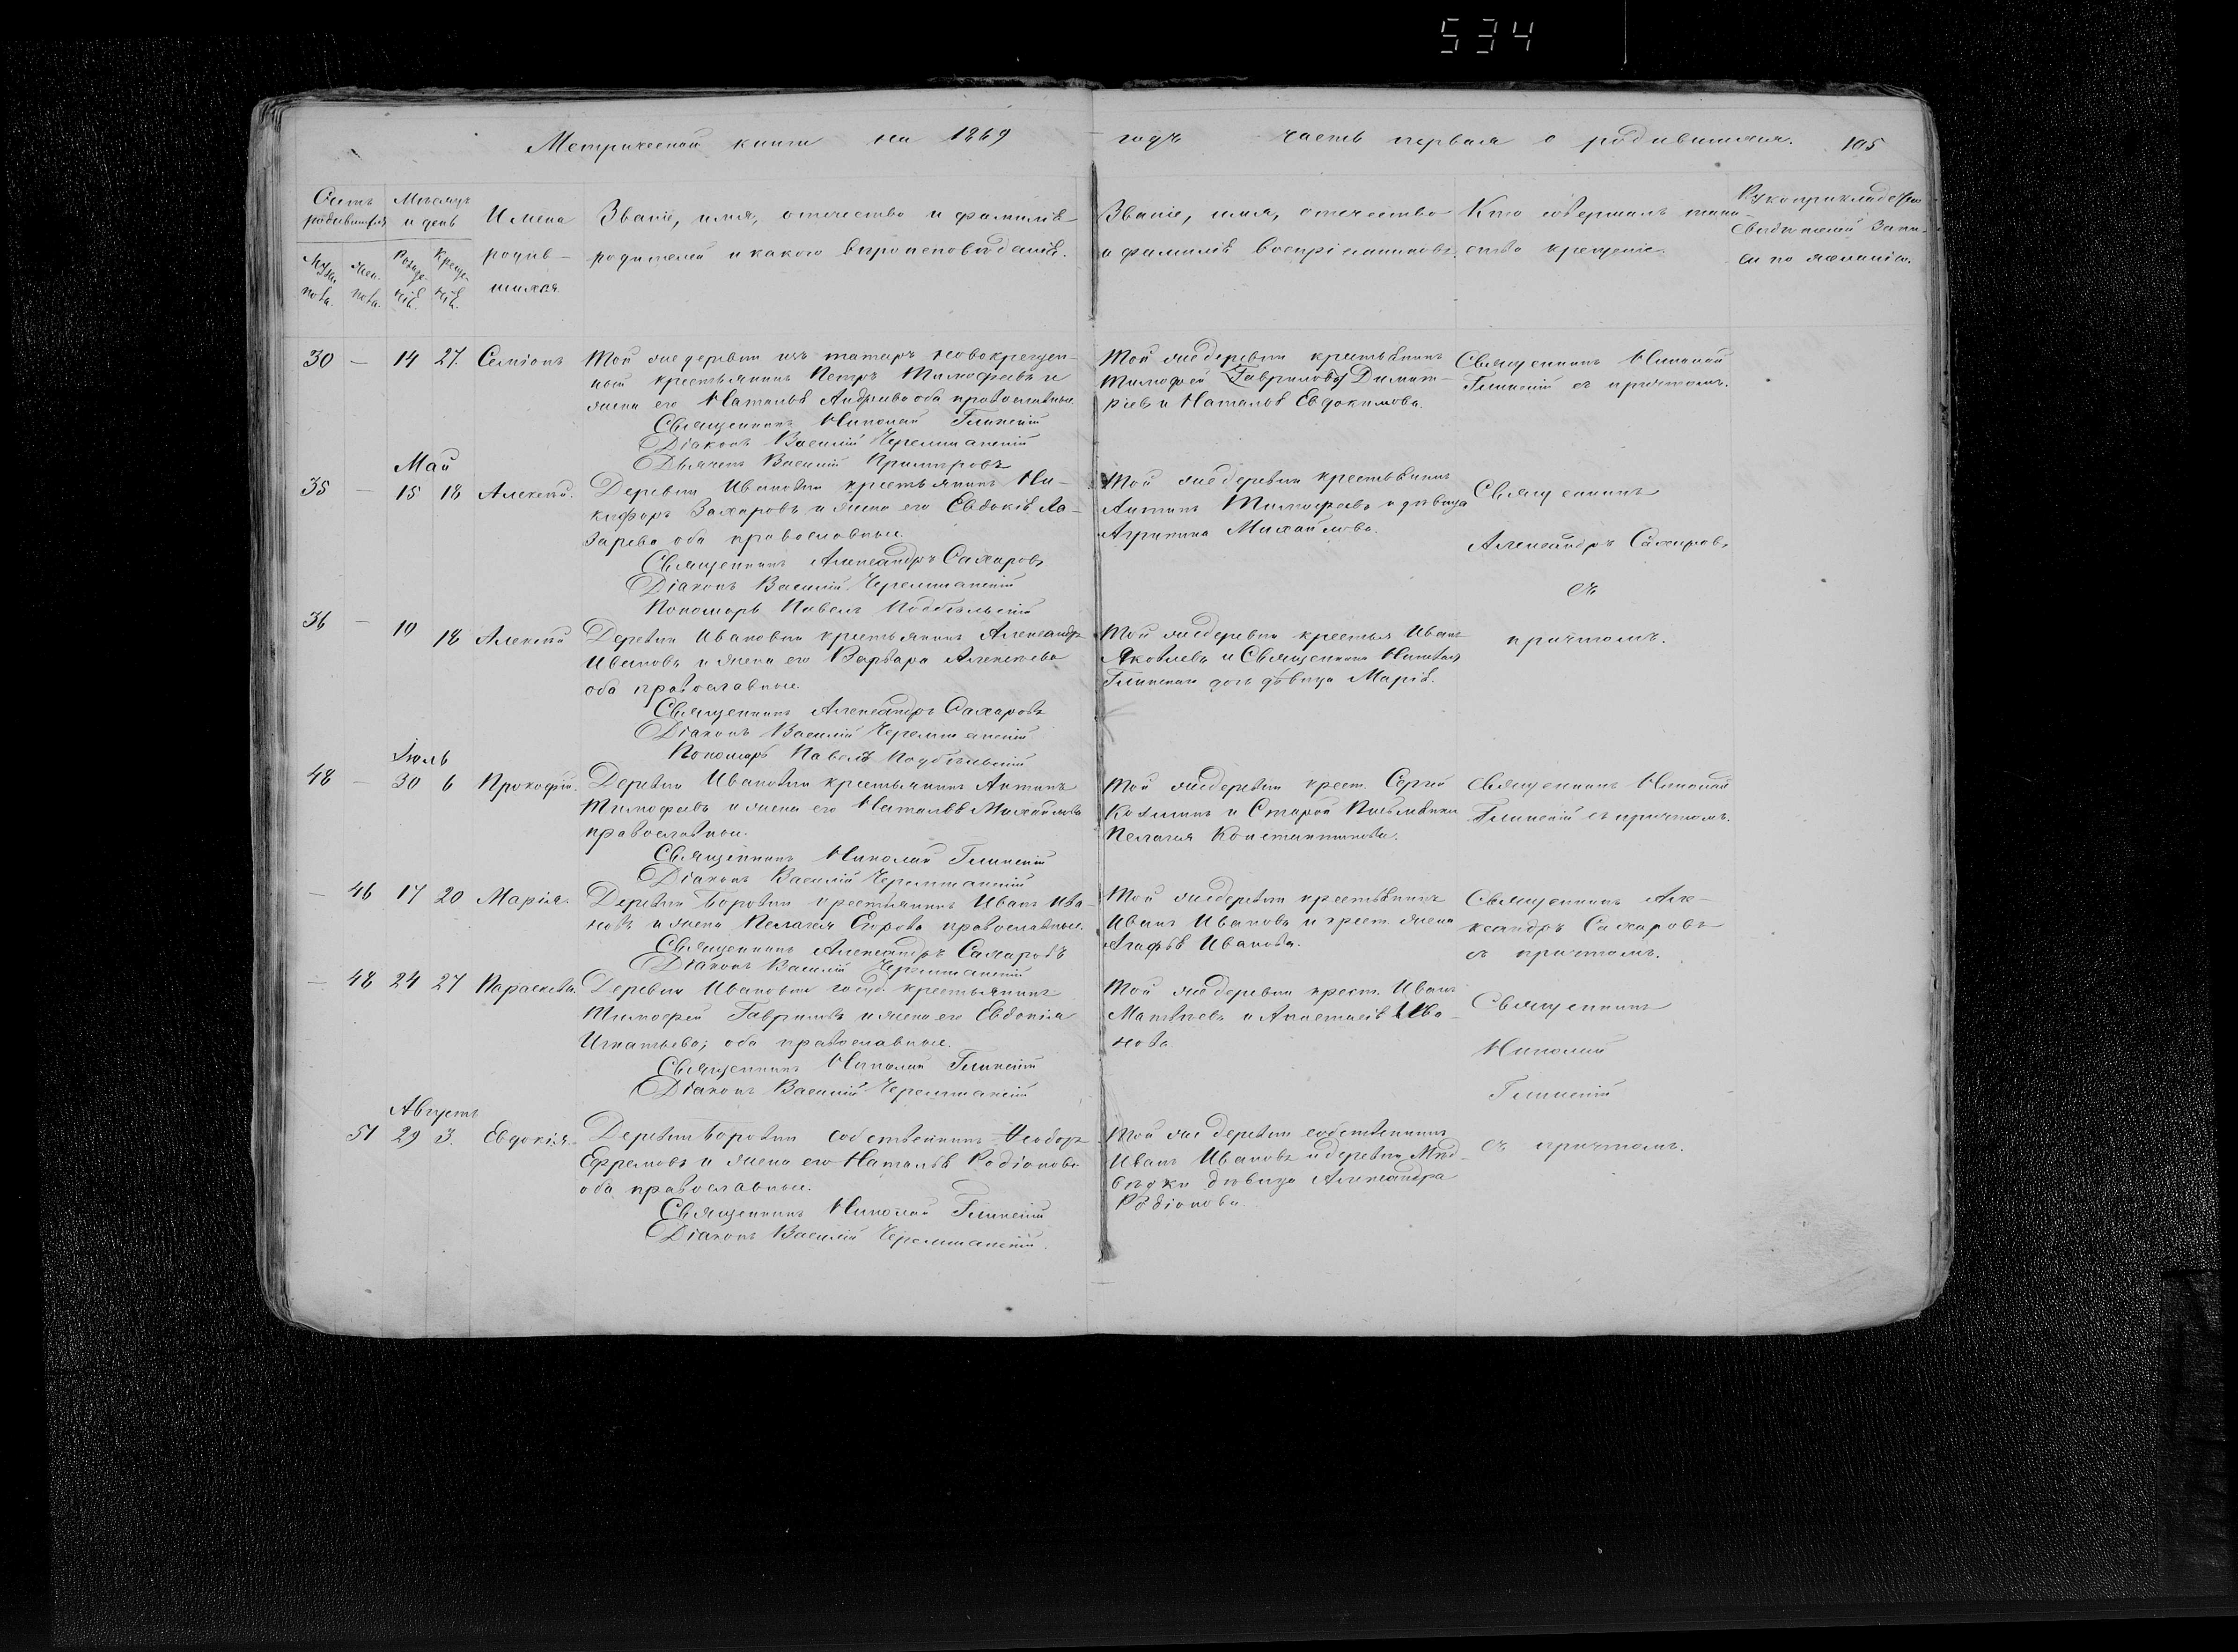 534
Метрической книги на 1869 годъ часть первая о родившихся. 105
Счетъ родившихся
Мужеска пола.
Женска пола.
Мѣсяцъ и день
Рожденія.
Крещенія.
Имена
родив-
шихся
Званіе, имя, отечество и фамилія
родителей и какого вѣроисповѣданія.
Званіе, имя, отечество
и фамилія воспріемниковъ.
Кто совершалъ таин-
ство крещенія.
Рукоприкладство
свидѣтелей запи-
си по желанію.
30 — 14 27. Симеонъ
Той же деревни изъ татаръ новокрещен-
ный крестьянинъ Петръ Тимофеевъ и
жена его Наталья Андреева оба православные
Священникъ Николай Глинскій
Діаконъ Василій Черемшанскій
Дьячекъ Василій
Той же деревни крестьянинъ
Тимофей Гавриловъ Димит-
ріевъ и Наталья Евдокимова.
Священникъ Николай
Глинскій съ причтомъ.
Май
35 — 15 18 Алексій.
Деревни Ивановки крестьянинъ Ни-
кифоръ Захаровъ и жена его Евдокія Ла-
зарева оба православные.
Священникъ Александръ Сахаровъ
Діаконъ Василій Черемшанскій
Пономарь Павелъ Подбѣльскій
Той же деревни крестьянинъ
Антипъ Тимофеевъ и дѣвица
Агрипина Михайлова.
Священникъ
Александръ Сахаровъ
съ
причтомъ.
36 — 10 18 Алексій
Деревни Ивановки крестьянинъ Александръ
Ивановъ и жена его Варвара Алексѣева
оба православные.
Священникъ Александръ Сахаровъ
Діаконъ Василій Черемшанскій
Пономарь Павелъ Подбѣльскій
Той же деревни крестья Иванъ
Яковлевъ и Священника Николая
Глинскаго дочь дѣвица Марія.
Іюль
48 — 30 6 Прокофій.
Деревни Ивановки крестьянинъ Антипъ
Тимофеевъ и жена его Наталья Михайлова
православные.
Священникъ Николай Глинскій
Діаконъ Василій Черемшанскій
Той же деревни крест. Сергій
Козминъ и Старой Письмянки
Пелагея Константинова.
Священникъ Николай
Глинскій съ причтомъ.
— 46 17 20 Марія.
Деревни Боровки крестьянинъ Иванъ Ива-
новъ и жена Пелагея Егорова православные.
Священникъ Александръ Сахаровъ
Діаконъ Василій Черемшанскій
Той же деревни крестьянинъ
Иванъ Ивановъ и крест. жена
Агафья Иванова.
Священникъ Але-
ксандръ Сахаровъ
съ причтомъ.
— 48 24 27 Параскева.
Деревни Ивановки госуд. крестьянинъ
Тимофей Гавриловъ и жена его Евдокія
Игнатьева; оба православные.
Священникъ Николай Глинскій
Діаконъ Василій Черемшанскій
Той же деревни крест. Иванъ
Матвѣевъ и Анастасія Ива-
нова
Священникъ
Николай
Глинскій
съ причтомъ.
Августъ
51 29 3. Евдокія.
Деревни Боровки собственникъ Ѳеодоръ
Ефремовъ и жена его Наталья Родіонова
оба православные.
Священникъ Николай Глинскій
Діаконъ Василій Черемшанскій.
Той же деревни собственникъ
Иванъ Ивановъ и деревни
дѣвица Александра
Родіонова.